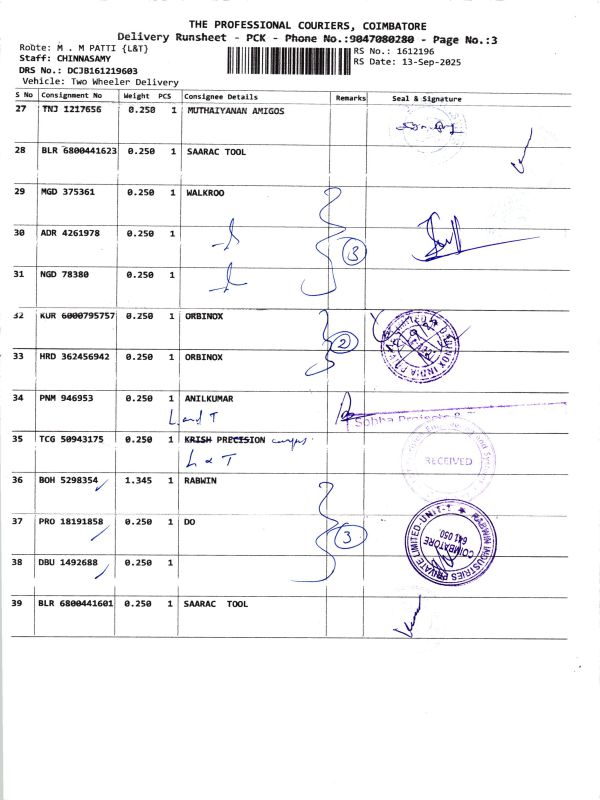 THE PROFESSIONAL COURIERS, COIMBATORE
Delivery Runsheet - PCK - Phone No.:9047080280 - Page No.:3
Route: M . M PATTI {L&T}
RS No.: 1612196
Staff: CHINNASAMY
RS Date: 13-Sep-2025
DRS No.: DCJB161219603
Vehicle: Two Wheeler Delivery
S No Consignment No Weight PCS Consignee Details Remarks Seal & Signature
27 TNJ 1217656 0.250 1 MUTHAIYANAN AMIGOS
28 BLR 6800441623 0.250 1 SAARAC TOOL
29 MGD 375361 0.250 1 WALKROO
30 ADR 4261978 0.250 1
3
31 NGD 78380 0.250 1
32 KUR 6000795757 0.250 1 ORBINOX
2
33 HRD 362456942 0.250 1 ORBINOX
34 PNM 946953 0.250 1 ANILKUMAR
L and T
Sobha Projects &
35 TCG 50943175 0.250 1 KRISH PRECISION
L & T
RECEIVED
36 BOH 5298354 1.345 1 RABWIN
37 PRO 18191858 0.250 1 DO
3
RABWIN INDUSTRIES PRIVATE LIMITED-UNIT-1
COIMBATORE
641 050.
38 DBU 1492688 0.250 1
39 BLR 6800441601 0.250 1 SAARAC TOOL